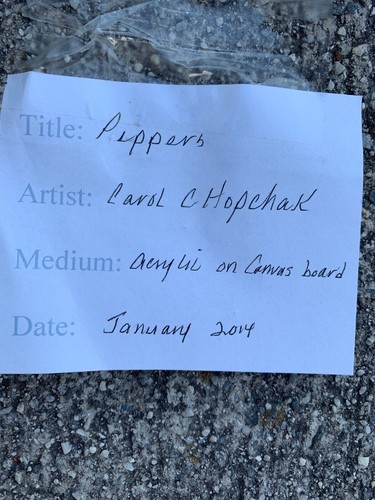 Title: Peppers
Artist: Carol CHopchak
Medium: acrylic on Canvas board
Date: January 2014